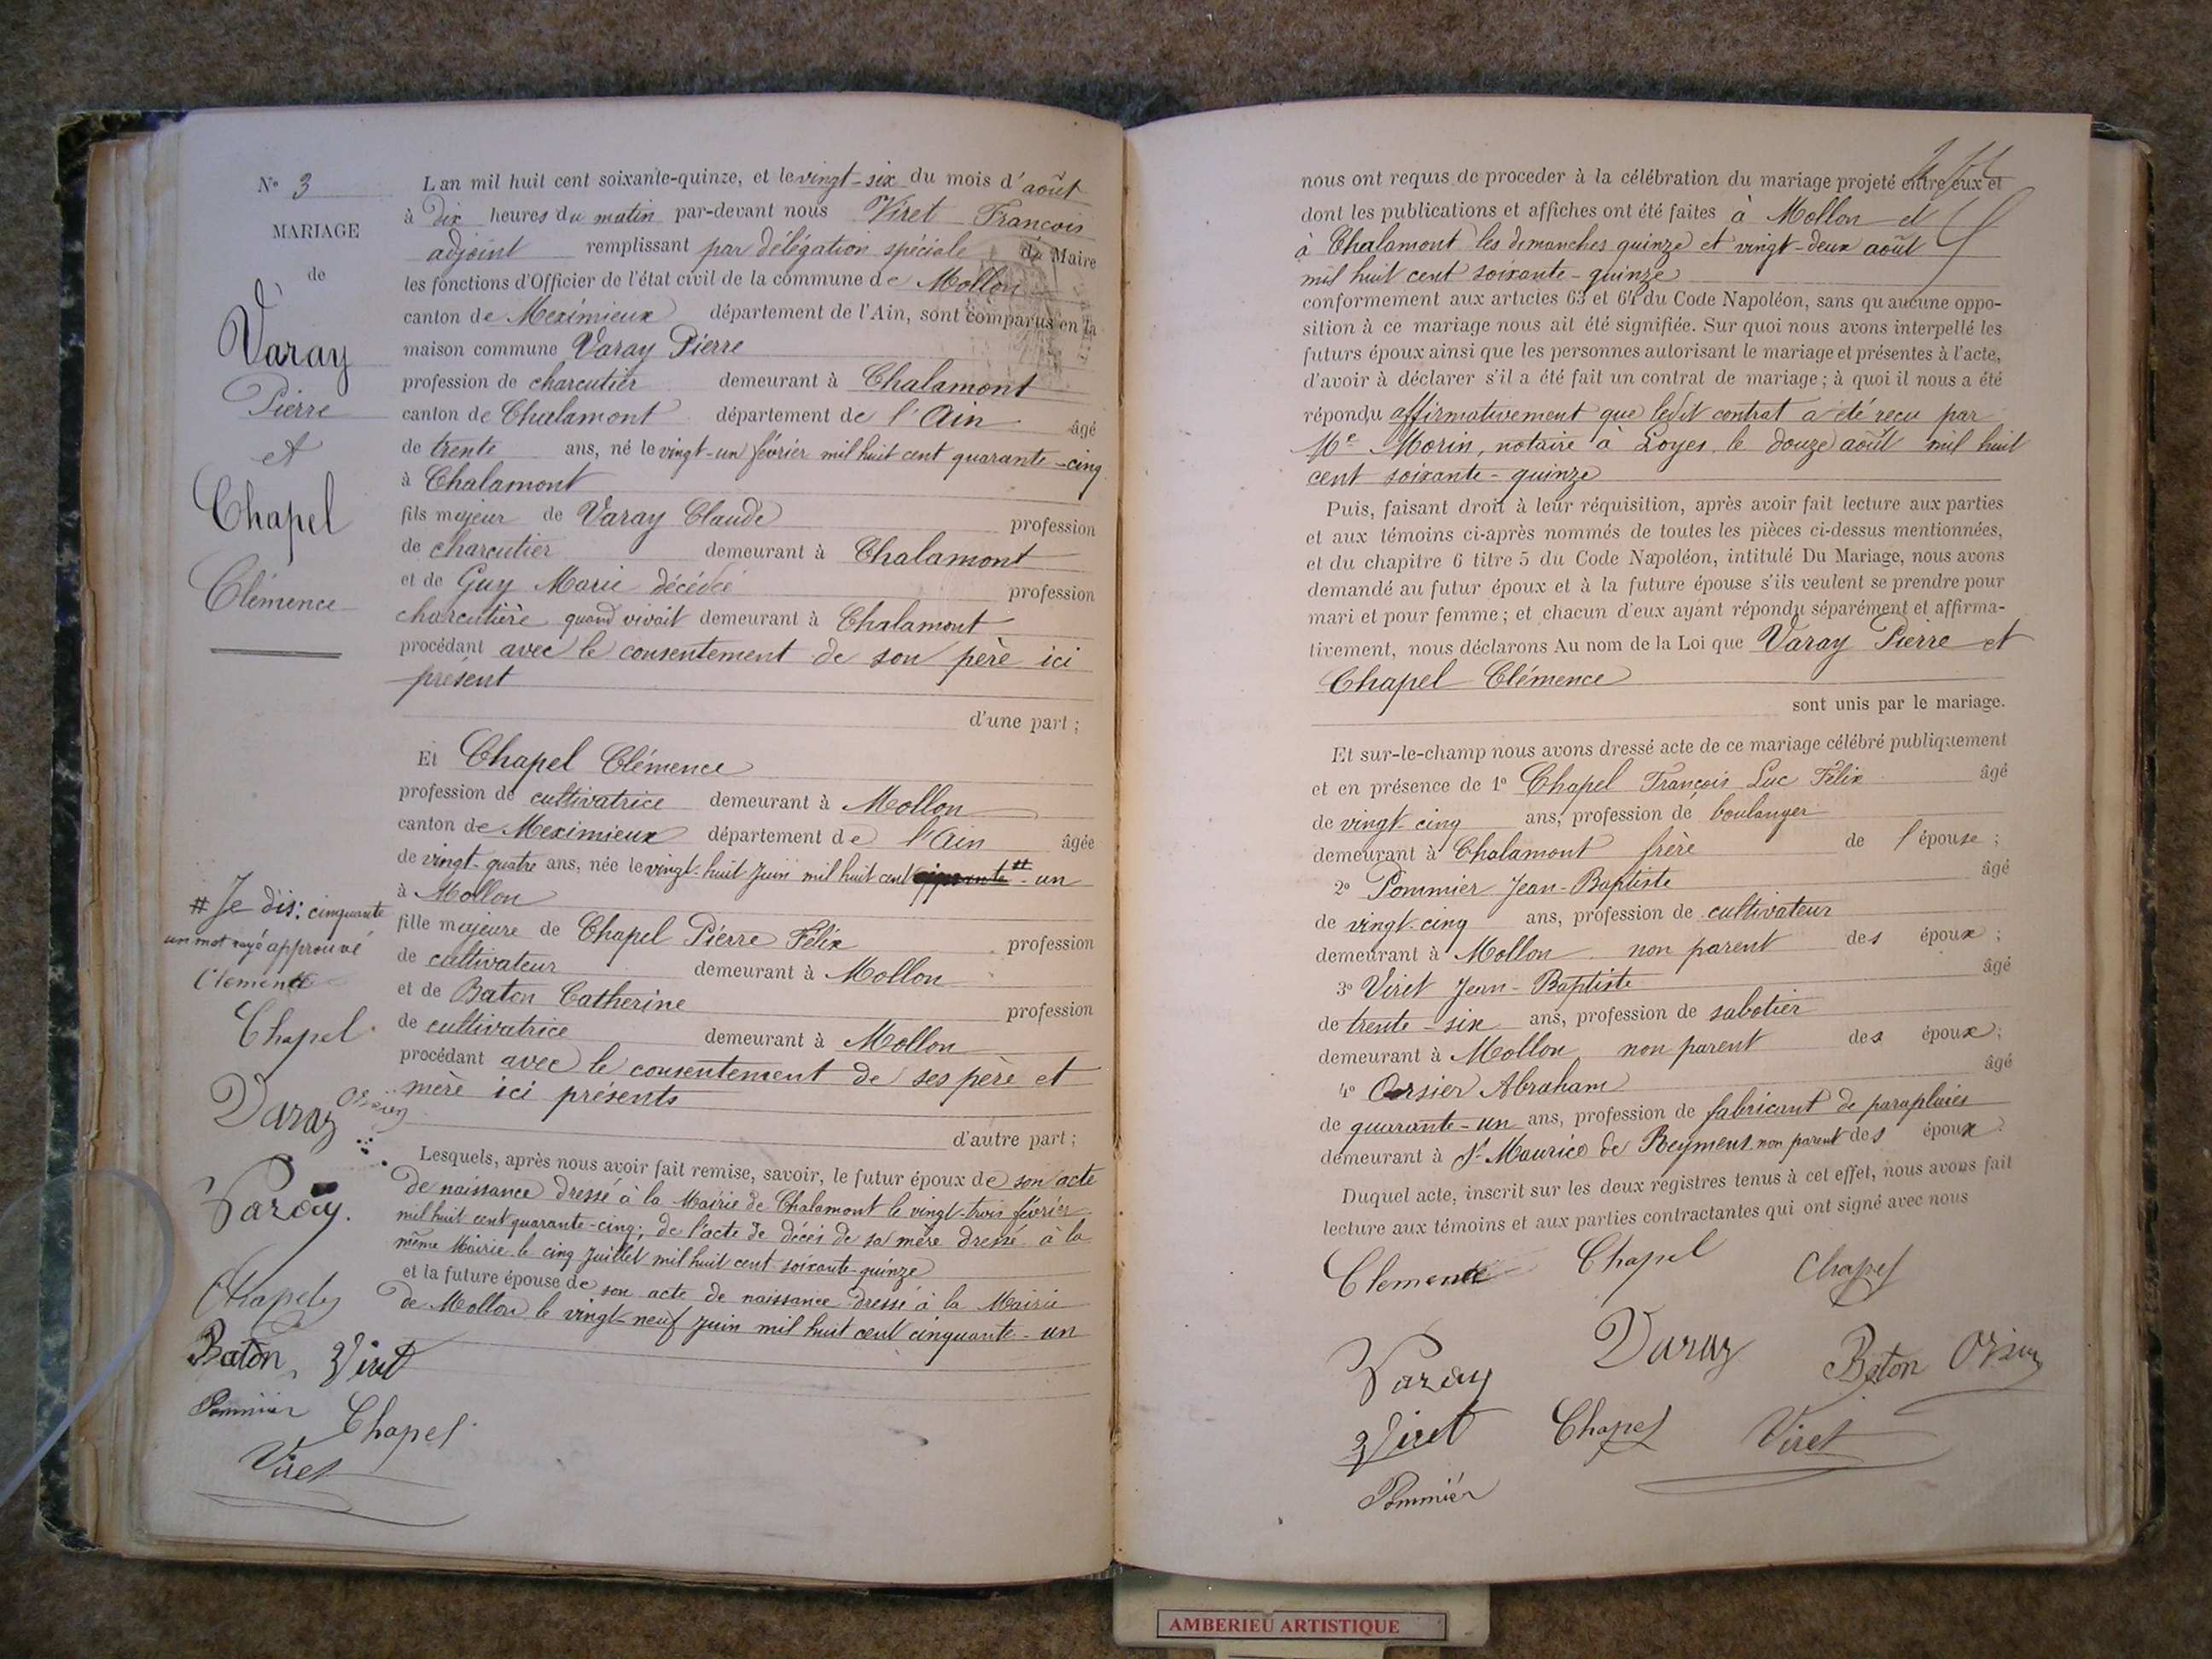 N° 3
MARIAGE
de
Varay
Pierre
et
Chapel
Clémence
# Je dis: cinquante
un mot rayé approuvé
Clemence
Chapel
Varay Orsier
Varay.
Chapel
Baton Viret
Pommier
Chapel
Viret
L'an mil huit cent soixante-quinze, et le vingt-six du mois d'août
à dix heures du matin par-devant nous Viret François
adjoint remplissant par délégation spéciale du Maire
les fonctions d'Officier de l'état civil de la commune de Mollon
canton de Meximieux département de l'Ain, sont comparus en la
maison commune Varay Pierre
profession de charcutier demeurant à Chalamont
canton de Chalamont département de l'Ain âgé
de trente ans, né le vingt-un février mil huit cent quarante-cinq
à Chalamont
fils majeur de Varay Claude profession
de charcutier demeurant à Chalamont
et de Guy Marie décédée profession
charcutière quand vivait demeurant à Chalamont
procédant avec le consentement de son père ici
présent
d'une part ;
Et Chapel Clémence
profession de cultivatrice demeurant à Mollon
canton de Meximieux département de l'Ain âgée
de vingt-quatre ans, née le vingt-huit juin mil huit cent # -un
à Mollon
fille majeure de Chapel Pierre Félix profession
de cultivateur demeurant à Mollon
et de Baton Catherine profession
de cultivatrice demeurant à Mollon
procédant avec le consentement de ses père et
mère ici présents
d'autre part ;
Lesquels, après nous avoir fait remise, savoir, le futur époux de son acte
de naissance dressé à la Mairie de Chalamont le vingt-trois février
mil huit cent quarante-cinq; de l'acte de décès de sa mère dressé à la
même Mairie le cinq juillet mil huit cent soixante-quinze
et la future épouse de son acte de naissance dressé à la Mairie
de Mollon le vingt-neuf juin mil huit cent cinquante-un
nous ont requis de proceder à la célébration du mariage projeté entre eux et
dont les publications et affiches ont été faites à Mollon et
à Chalamont les dimanches quinze et vingt-deux août
mil huit cent soixante-quinze
conformement aux articles 63 et 64 du Code Napoléon, sans qu'aucune oppo-
sition à ce mariage nous ait été signifiée. Sur quoi nous avons interpellé les
futurs époux ainsi que les personnes autorisant le mariage et présentes à l'acte,
d'avoir à déclarer s'il a été fait un contrat de mariage ; à quoi il nous a été
répondu affirmativement que ledit contrat a été reçu par
Me Morin, notaire à Loyes, le douze août mil huit
cent soixante-quinze
Puis, faisant droit à leur réquisition, après avoir fait lecture aux parties
et aux témoins ci-après nommés de toutes les pièces ci-dessus mentionnées,
et du chapitre 6 titre 5 du Code Napoléon, intitulé Du Mariage, nous avons
demandé au futur époux et à la future épouse s'ils veulent se prendre pour
mari et pour femme ; et chacun d'eux ayant répondu séparément et affirma-
tivement, nous déclarons Au nom de la Loi que Varay Pierre et
Chapel Clémence
sont unis par le mariage.
Et sur-le-champ nous avons dressé acte de ce mariage célébré publiquement
et en présence de 1° Chapel François Luc Félix âgé
de vingt-cinq ans, profession de boulanger
demeurant à Chalamont frère de l'épouse ;
2° Pommier Jean-Baptiste âgé
de vingt-cinq ans, profession de cultivateur
demeurant à Mollon non parent des époux ;
3° Viret Jean-Baptiste âgé
de trente-six ans, profession de sabotier
demeurant à Mollon non parent des époux ;
4° Orsier Abraham âgé
de quarante-un ans, profession de fabricant de parapluies
demeurant à St Maurice de Reymens non parent des époux.
Duquel acte, inscrit sur les deux registres tenus à cet effet, nous avons fait
lecture aux témoins et aux parties contractantes qui ont signé avec nous
Clemence Chapel Chapel
Varay Varay Baton Orsier
Viret Chapel Viret
Pommier
AMBERIEU ARTISTIQUE